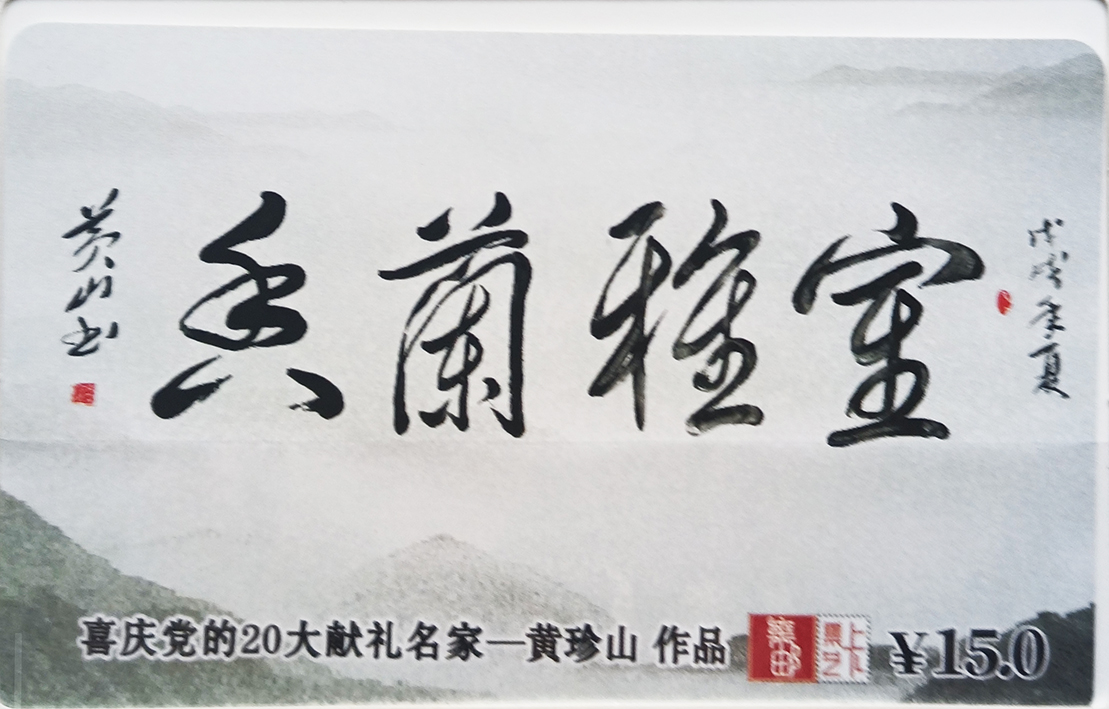 戊戌夏
室雅蘭香
黄山书
喜庆党的20大献礼名家—黄珍山 作品
¥15.0